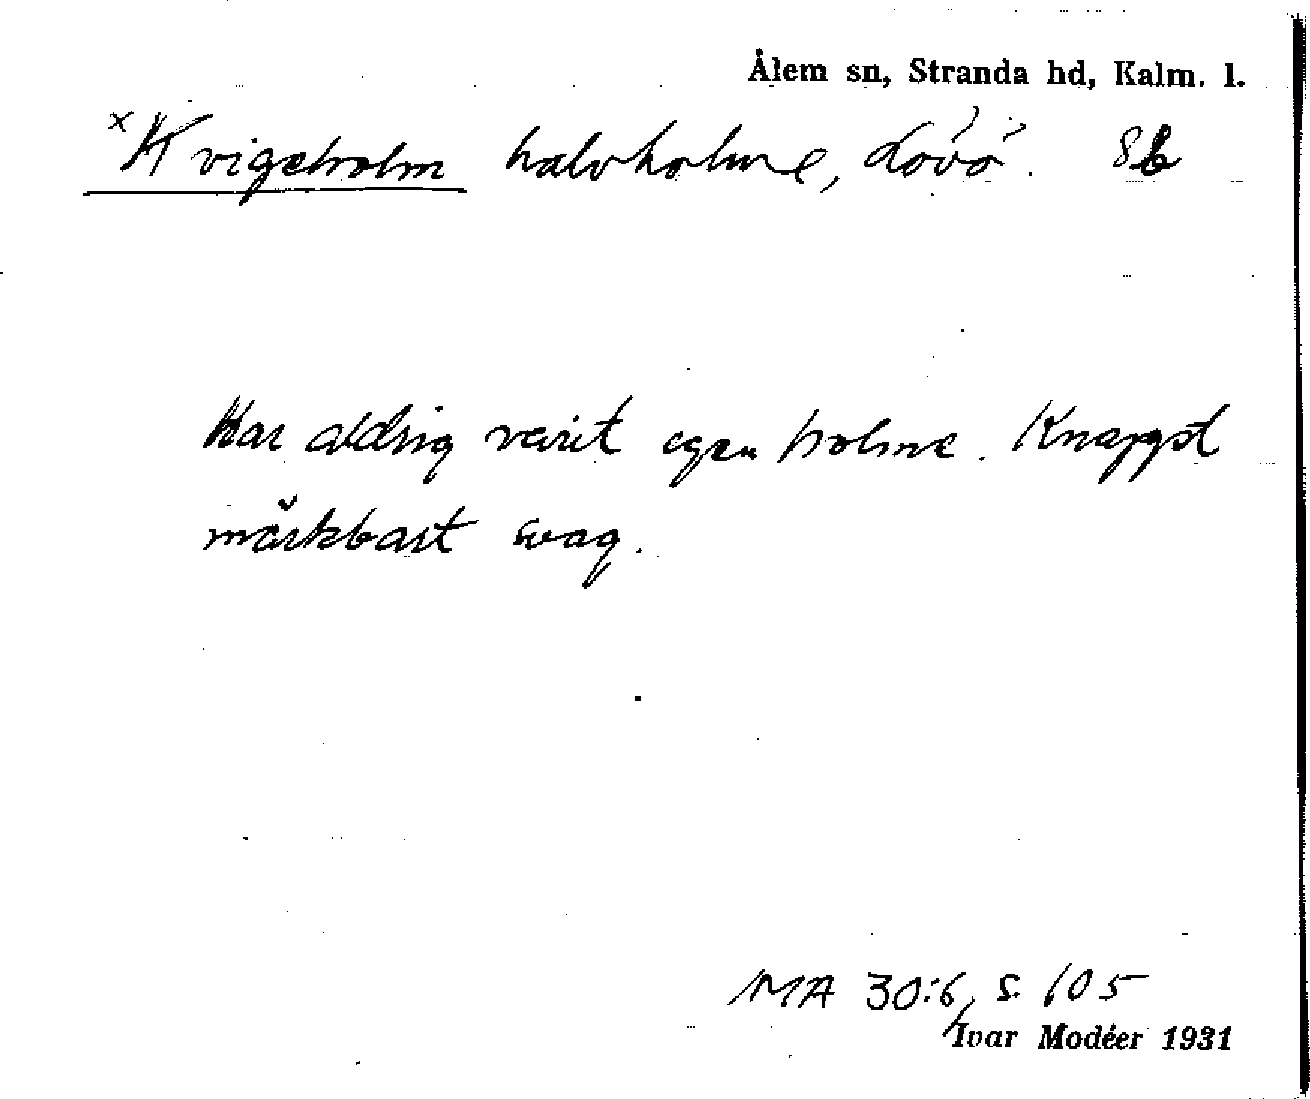 Ålem sn, Stranda hd, Kalm. l.
x Kvigeholm halvholme, Lövö. 8b
Har aldrig varit egen holme. Knappst
märkbart svag.
MA 30:6, s. 105
Ivar Modéer 1931